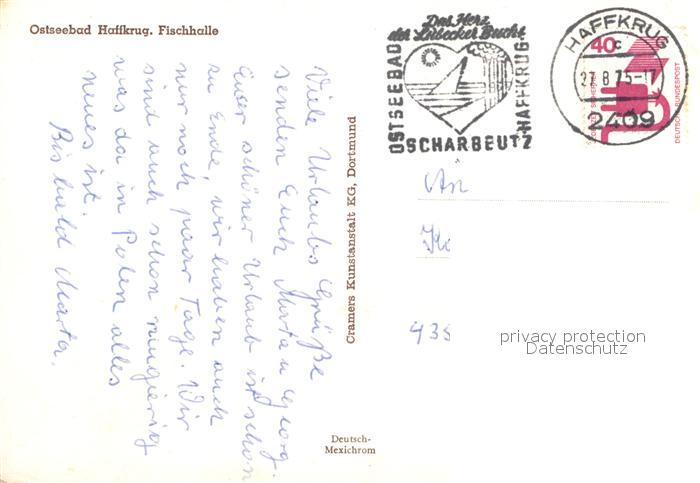 Ostseebad Haffkrug. Fischhalle
Das Herz
der Lübecker Bucht
OSTSEEBAD
SCHARBEUTZ
HAFFKRUG
HAFFKRUG
40
c
27.8.75-17
2409
DEUTSCHE BUNDESPOST
Viele Urlaubs Grüße
senden Euch Marta u Georg.
Euer schöner Urlaub ist schon
zu Ende, wir haben auch
nur noch paar Tage. Wir
sind auch schon neugierig
was da in Polen alles
neues ist.
Bis bald Marta.
Cramers Kunstanstalt KG, Dortmund
An
435
privacy protection
Datenschutz
Deutsch-
Mexichrom